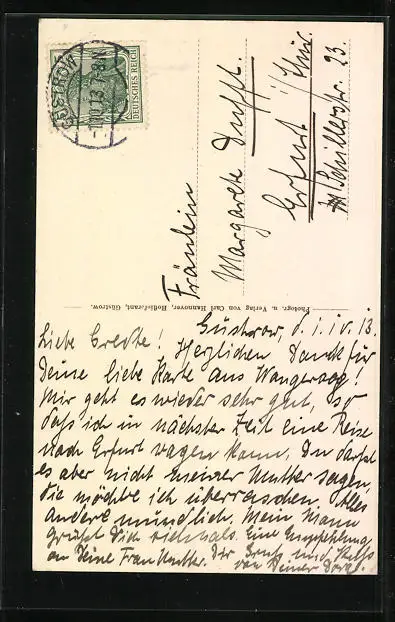 GÜSTROW
DEUTSCHES REICH
Fräulein
Margarete
Erfurt i/Thür.
Schillerstr. 23.
Photogr. u. Verlag von Carl Hannover, Hoflieferant, Güstrow.
Güstrow, d. 1. IV. 13.
Liebe Grete! Herzlichen Dank für
Deine liebe Karte aus Wangeroog!
Mir geht es wieder sehr gut, so
daß ich in nächster Zeit eine Reise
nach Erfurt wagen kann, Du darfst
es aber nicht meiner Mutter sagen,
die möchte ich überraschen. Alles
andere mündlich. Mein Mann
grüßt Dich vielmals. Eine Empfehlung
an Deine Frau Mutter. Dir Gruß und Kuss
von Deiner